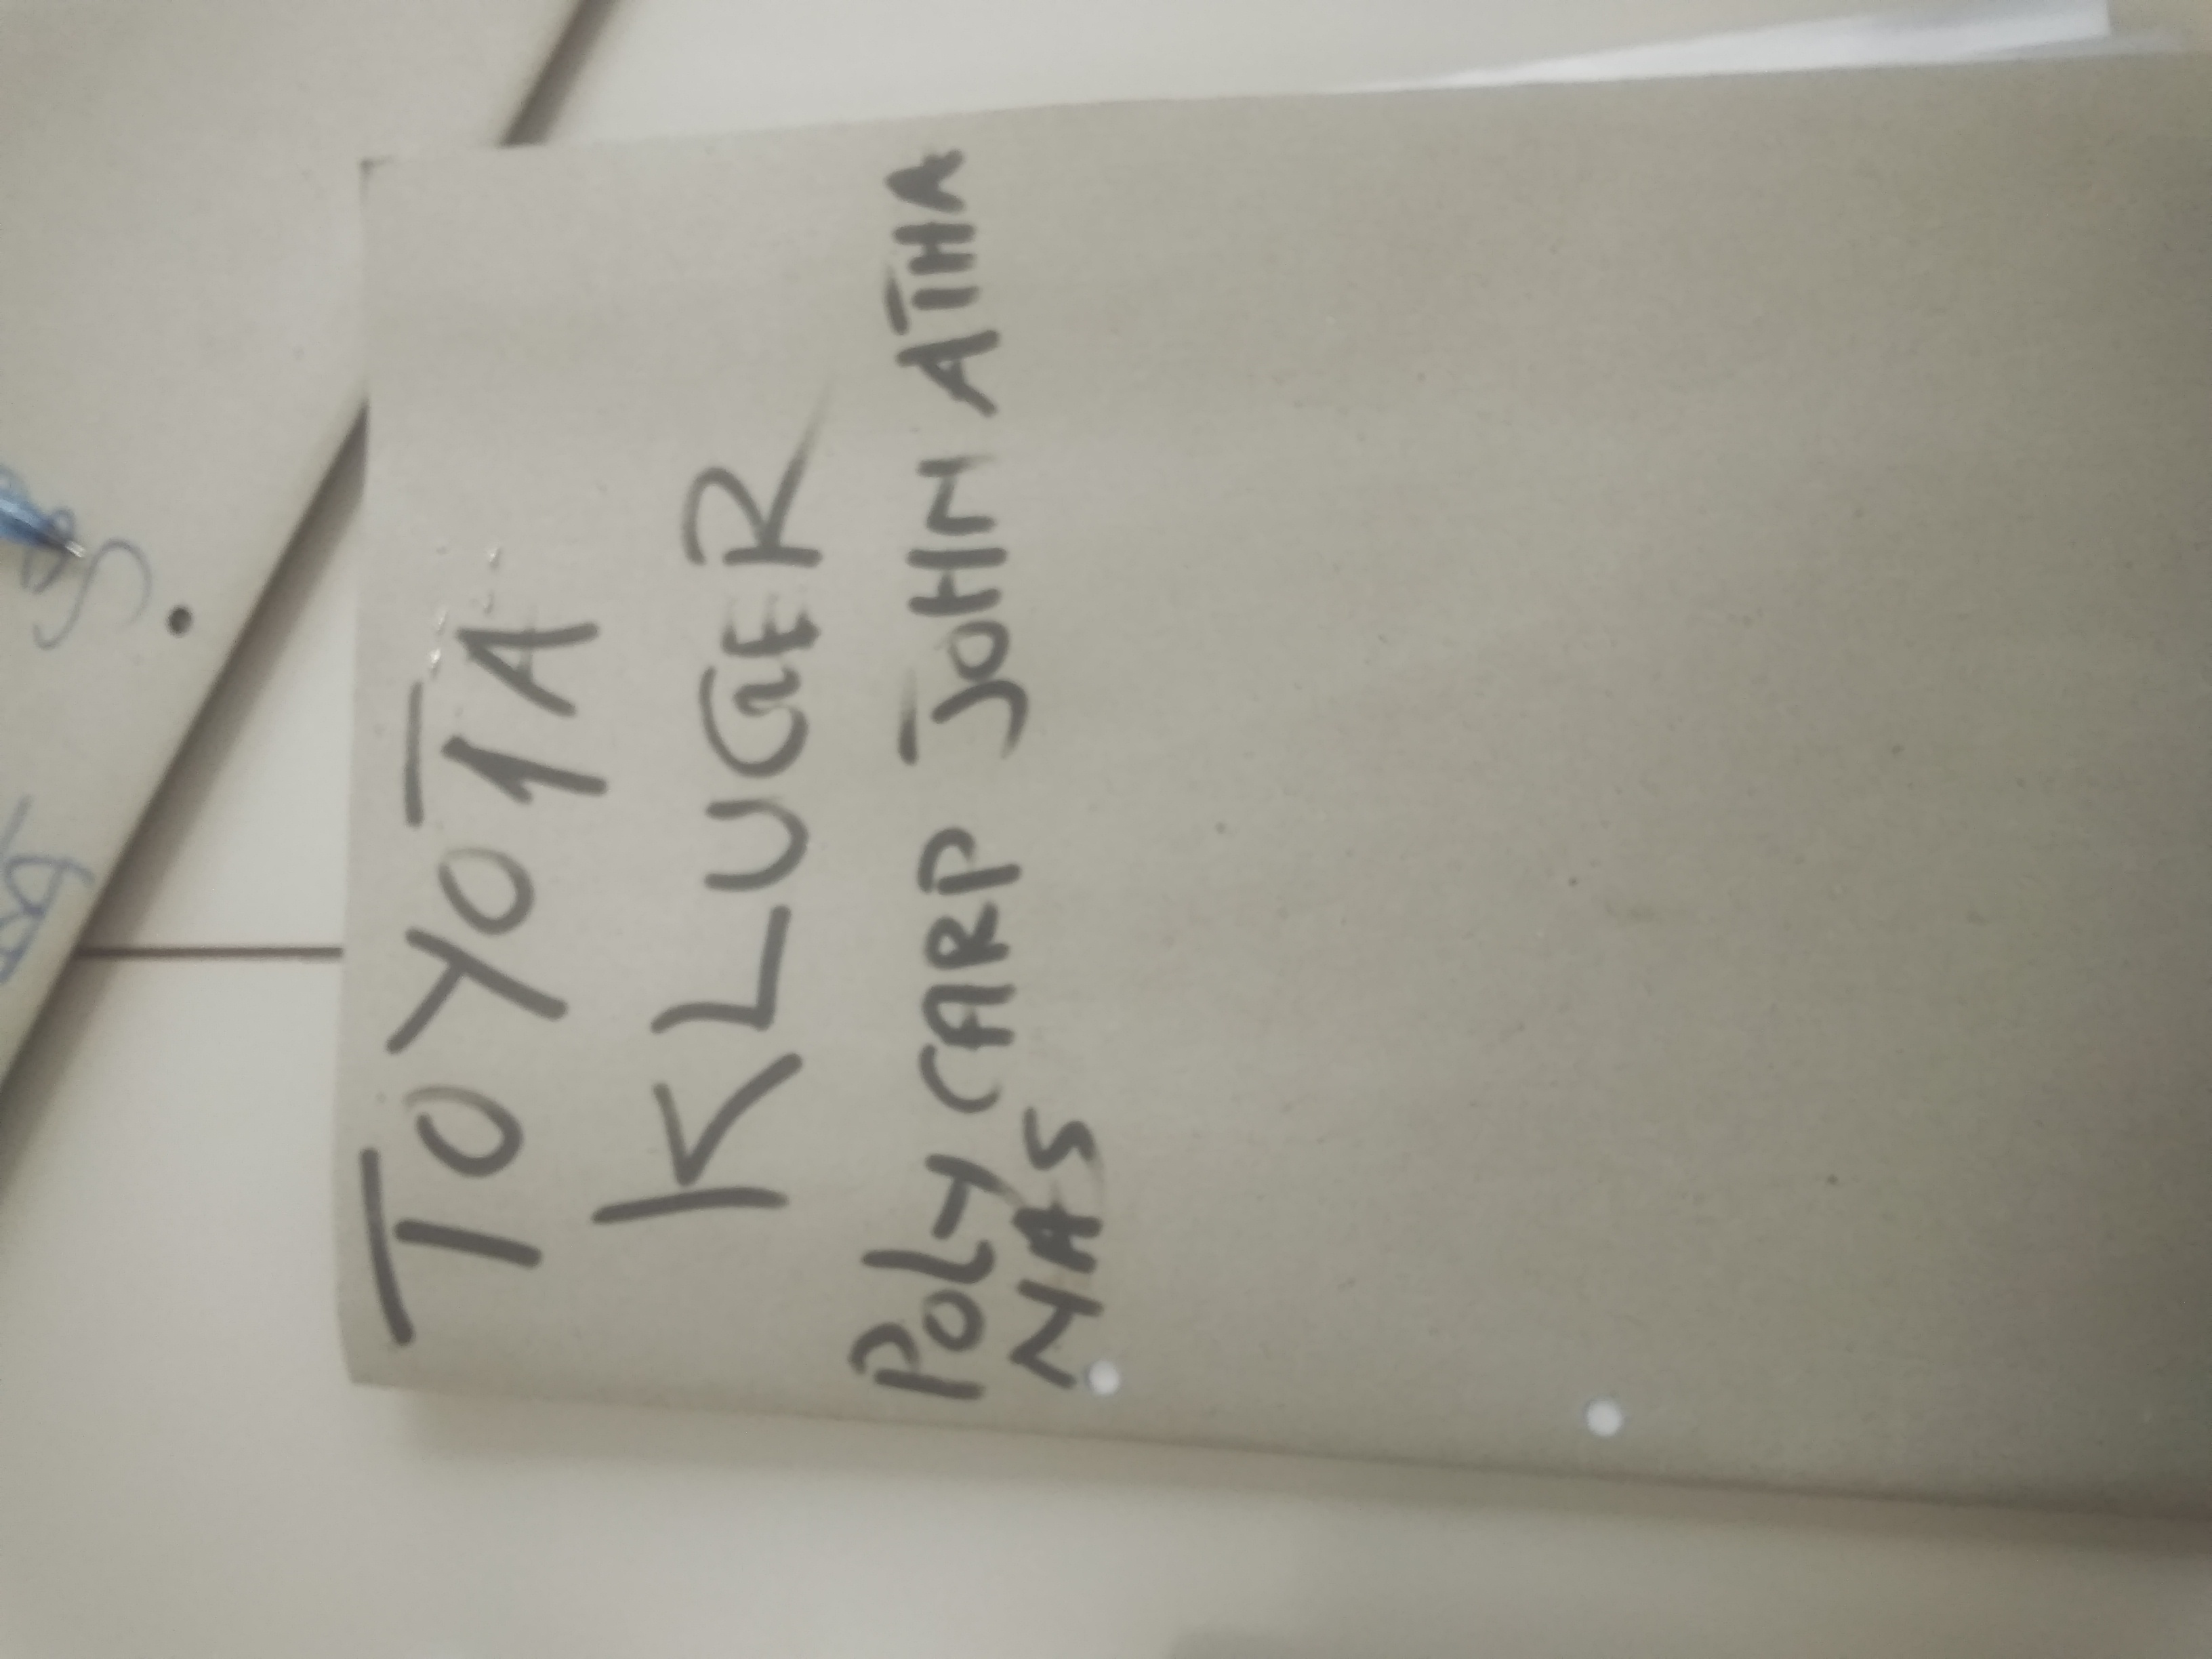 TOYOTA
KLUGER
POLYCARP JOHN ATHA
NAS